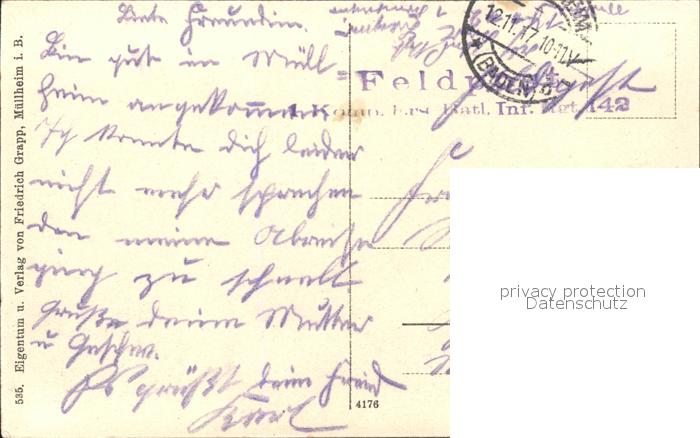 Liebe Freundin.
Bin gut in Müll=
heim angekommen
Ich konnte dich leider
nicht mehr sprechen
den meine Abreise
ging zu schnell
Grüße deine Mutter
u Geschw.
Es grüßt dein Freund
Karl
535. Eigentum u. Verlag von Friedrich Grapp, Müllheim i. B.
4176
12.11.17 10-11V
BADEN
Feldpost
1. Komp. Ers. Batl. Inf. Rgt. 142
privacy protection
Datenschutz